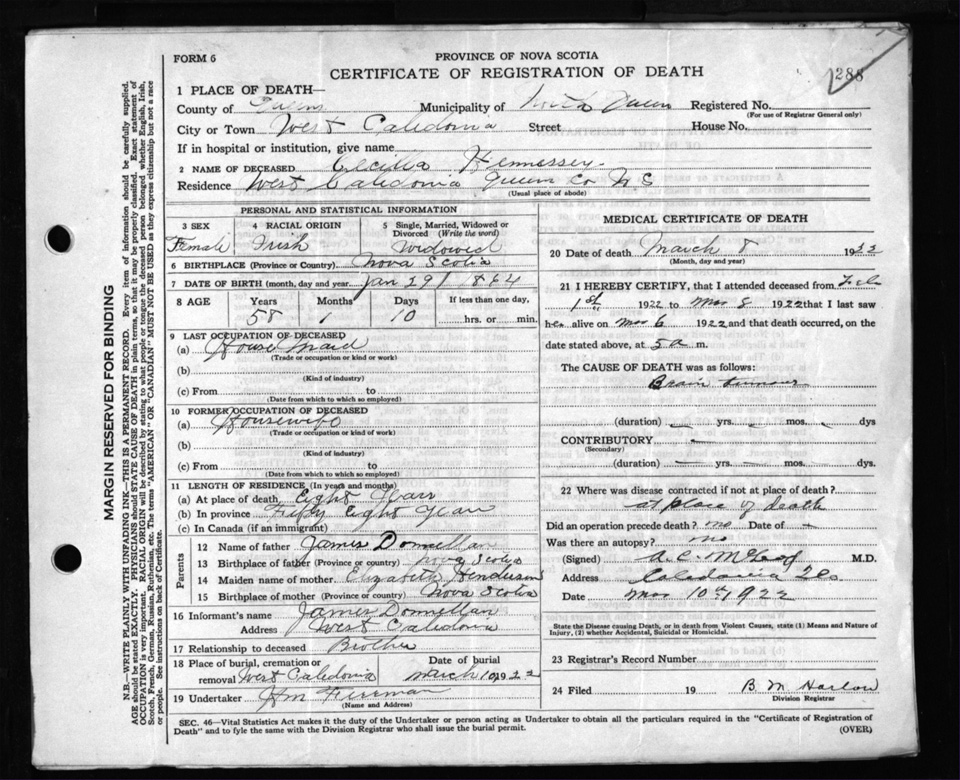 FORM 6
PROVINCE OF NOVA SCOTIA
CERTIFICATE OF REGISTRATION OF DEATH
288
1 PLACE OF DEATH—
County of Queens Municipality of North Queen Registered No.
(For use of Registrar General only)
City or Town West Caledonia Street House No.
If in hospital or institution, give name
2 NAME OF DECEASED Cecilia Hennessey
Residence West Caledonia Queens Co N S
(Usual place of abode)
MARGIN RESERVED FOR BINDING
N.B.—WRITE PLAINLY WITH UNFADING INK—THIS IS A PERMANENT RECORD. Every item of information should be carefully supplied.
AGE should be stated EXACTLY. PHYSICIANS should STATE CAUSE OF DEATH in plain terms, so that it may be properly classified. Exact statement of
OCCUPATION is very important. RACIAL ORIGIN will be described by stating to what people or tongue the deceased person belonged whether English, Irish,
Scotch, French, German, Russian, Ruthenian, etc. The terms "AMERICAN" OR "CANADIAN" MUST NOT BE USED as they express citizenship but not a race
or people. See instructions on back of Certificate.
PERSONAL AND STATISTICAL INFORMATION
3 SEX 4 RACIAL ORIGIN 5 Single, Married, Widowed or
Divorced (Write the word)
Female Irish Widowed
6 BIRTHPLACE (Province or Country) Nova Scotia
7 DATE OF BIRTH (month, day and year) Jan 29 1864
8 AGE Years Months Days If less than one day,
58 1 10 hrs. or min.
9 LAST OCCUPATION OF DECEASED
(a) House Maid
(Trade or occupation or kind or work)
(b)
(Kind of industry)
(c) From to
(Date from which to which so employed)
10 FORMER OCCUPATION OF DECEASED
(a) Housewife
(Trade or occupation or kind of work)
(b)
(Kind of industry)
(c) From to
(Date from which to which so employed)
11 LENGTH OF RESIDENCE (In years and months)
(a) At place of death Eight Years
(b) In province Fifty Eight Years
(c) In Canada (if an immigrant)
Parents
12 Name of father James Donnellan
13 Birthplace of father (Province or country) Nova Scotia
14 Maiden name of mother Elizabeth
15 Birthplace of mother (Province or country) Nova Scotia
16 Informant's name James Donnellan
Address West Caledonia
17 Relationship to deceased Brother
18 Place of burial, cremation or Date of burial
removal West Caledonia March 10 1922
19 Undertaker
(Name and Address)
MEDICAL CERTIFICATE OF DEATH
20 Date of death March 8 1922
(Month, day and year)
21 I HEREBY CERTIFY, that I attended deceased from Feb
1st 1922 to Mar 8 1922 that I last saw
her alive on Mar 6 1922 and that death occurred, on the
date stated above, at 5 a m.
The CAUSE OF DEATH was as follows:
Brain tumour
(duration) — yrs. — mos. — dys
CONTRIBUTORY —
(Secondary)
(duration) — yrs. — mos. dys.
22 Where was disease contracted if not at place of death?
at place of death
Did an operation precede death? no Date of —
Was there an autopsy? no
(Signed) A. C. M.D.
Address Caledonia
Date Mar 10th 1922
State the Disease causing Death, or in death from Violent Causes, state (1) Means and Nature of
Injury, (2) whether Accidental, Suicidal or Homicidal.
23 Registrar's Record Number
24 Filed 19 B. M. Harlow
Division Registrar
SEC. 46—Vital Statistics Act makes it the duty of the Undertaker or person acting as Undertaker to obtain all the particulars required in the "Certificate of Registration of
Death" and to fyle the same with the Division Registrar who shall issue the burial permit.
(OVER)